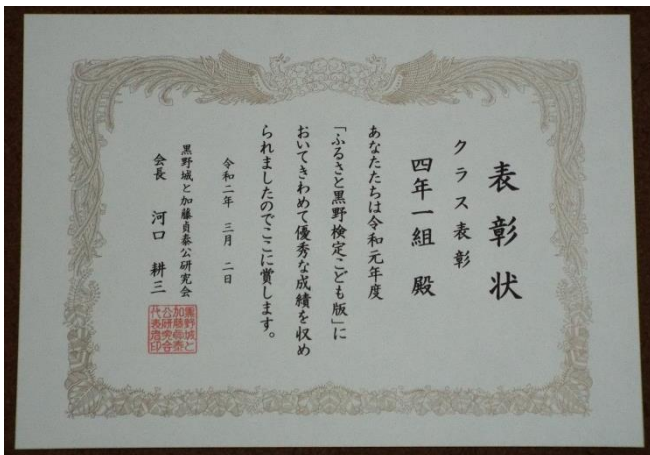 表彰状
クラス表彰
四年一組 殿
あなたたちは令和元年度
「ふるさと黒野検定こども版」に
おいてきわめて優秀な成績を収め
られましたのでここに賞します。
令和二年 三月 二日
黒野城と加藤貞泰公研究会
会長 河口 耕三
黒野城と
加藤貞泰
公研究会
代表者印